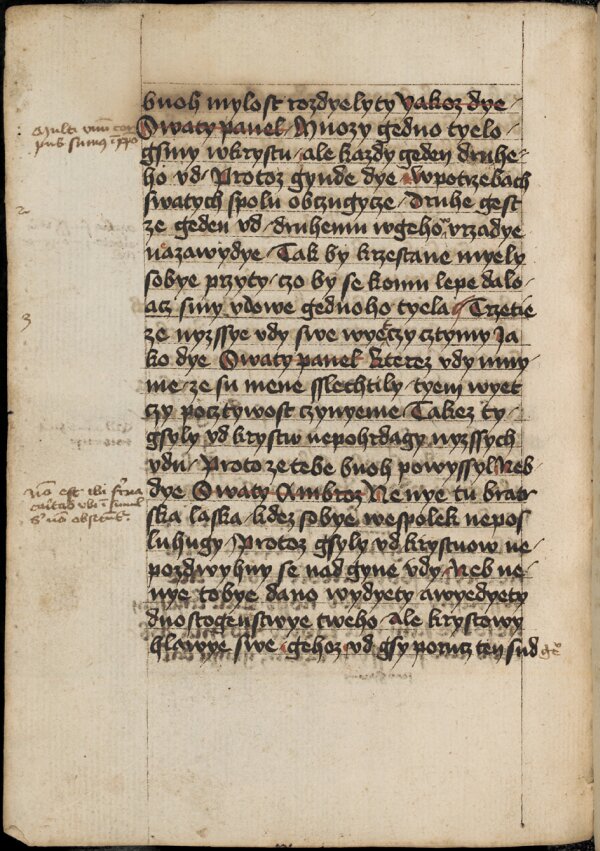 buoh mylost rozdyelyty Yakoz dye
Swaty pawel Mnozy gedno tyelo
gsmy wkrystu ale kazdy geden druhe
ho vd Protoz gynde dye wpotrzebach
swatych spolu obczugycze Druhe gest
ze geden vd druhemu wgeho vrzadye
nazawydye Tak by krzestane myely
sobye przyty czo by se komu lepe dalo
acz smy vdowe gednoho tyela Trzetie
ze nyzssye vdy swe wyeczy cztymy Ja
ko dye Swaty pawel kterez vdy mny
me ze su mene sslechtily tyem wyet
czy pocztywost czynyeme Takez ty
gsyly vd krystuw nepohrdagy nyzssych
vduo Proto ze tebe buoh powyssyl Neb
dye Swaty Ambroz Nenye tu bratr
ska laska kdez sobye wespolek nepos
luhugy Protoz gsyly vd krystuow ne
pozdwyhuy se nad gyne vdy Neb ne
nye tobye dano wydyety awyedyety
dnostogenstwye tweho ale krystowy
hlawye swe gehoz vd gsy porucz ten sud
Multi vnum cor
pus sumus
2
3
Non est ibi